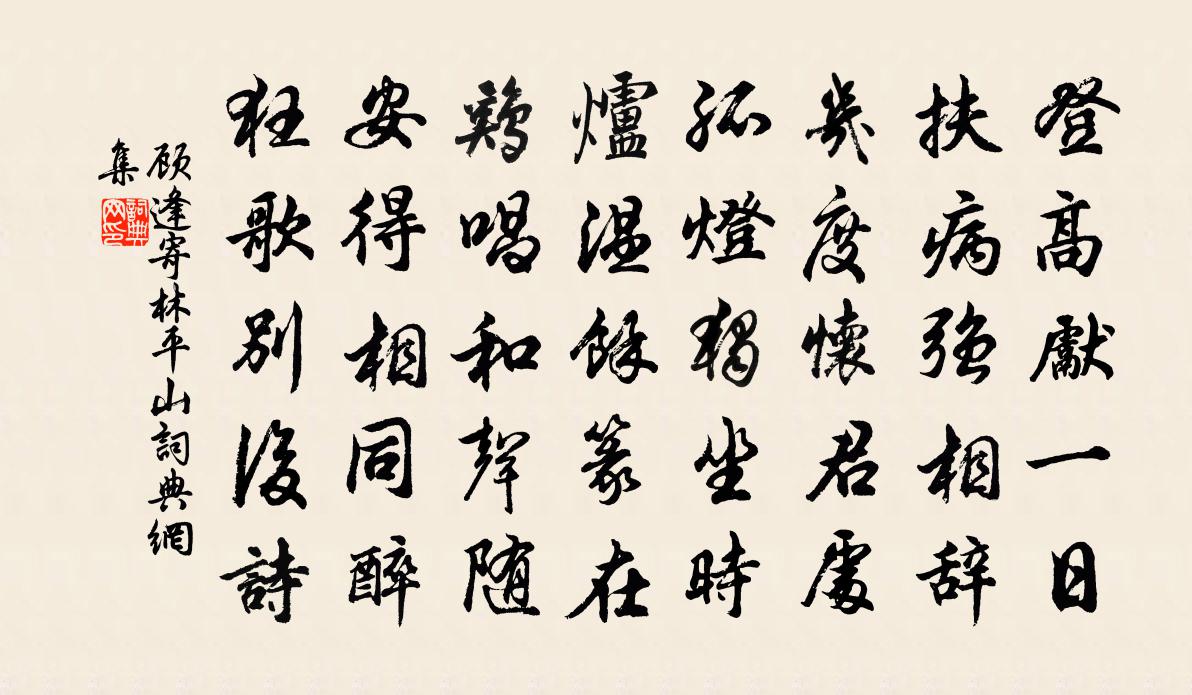 登高獻一日
扶病强相辞
幾度懷君處
孤燈獨坐時
爐温餘篆在
鷄唱和聲随
安得相同醉
狂歌别後詩
顾逢寄林平山詞典網
集
詞典
网印